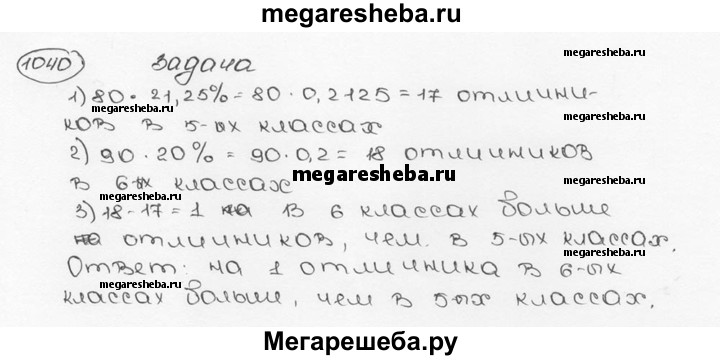 megaresheba.ru
1040 задача
megaresheba.ru
1) 80 · 21,25% = 80 · 0,2125 = 17 отлични-
megaresheba.ru
ков в 5-ых классах
megaresheba.ru
2) 90 · 20% = 90 · 0,2 = 18 отличников
megaresheba.ru
в 6-ых классах
megaresheba.ru
3) 18-17 = 1 на в 6 классах больше
на отличников, чем в 5-ых классах.
megaresheba.ru
Ответ: на 1 отличника в 6-ых
megaresheba.ru
классах больше, чем в 5ых классах.
Мегарешеба.ру